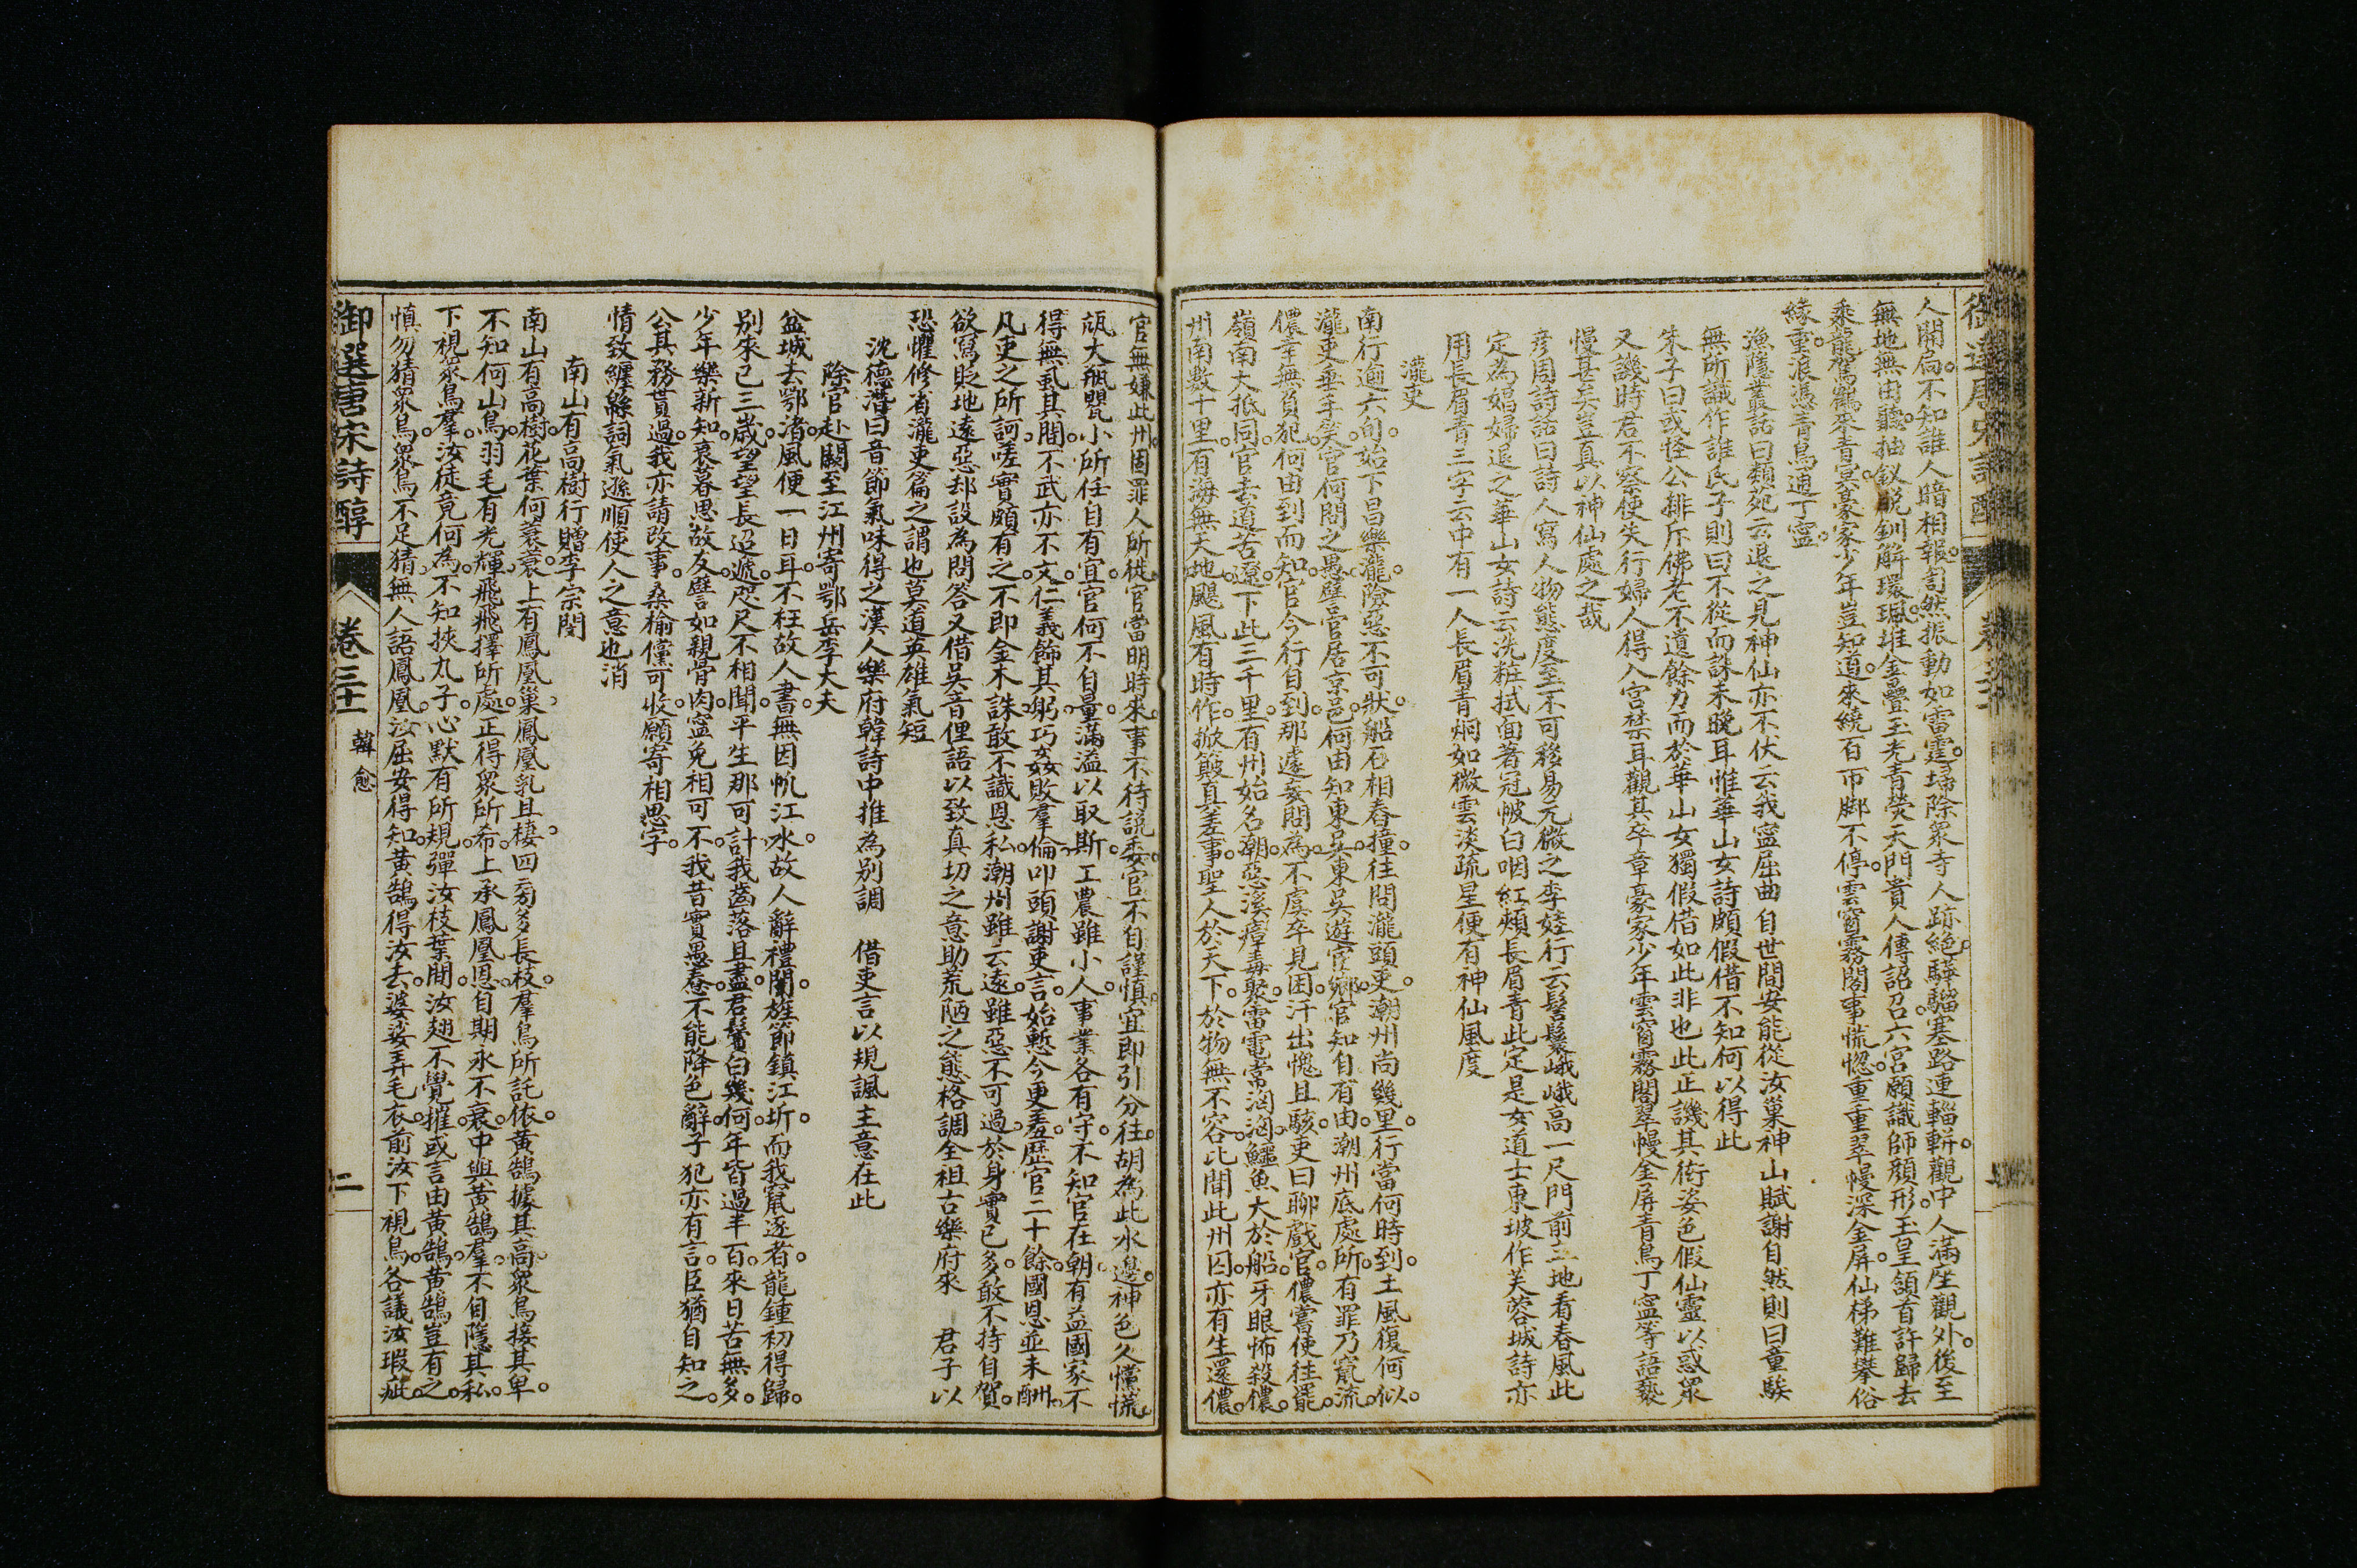 人開扃不知誰人暗相報訇然振動如雷霆埽除眾寺人跡絕驊騮塞路連輜軿觀中人滿座觀外後至
無地無由聽抽釵脫釧解環珮堆金疊玉光青熒天門貴人傳詔召六宮願識師顏形玉皇頷首許歸去
乘龍駕鶴來青冥豪家少年豈知道來繞百帀腳不停雲窗霧閣事慌惚重重翠幔深金屏仙梯難攀俗
緣重浪憑青鳥通丁寧
漁隱叢話曰類苑云退之見神仙亦不伏云我寧屈曲自世間安能從汝巢神山賦謝自然則曰童騃
無所識作誰氏子則曰不從而誅未晚耳惟華山女詩頗假借不知何以得此
朱子曰或怪公排斥佛老不遺餘力而於華山女獨假借如此非也此正譏其衒姿色假仙靈以惑眾
又譏時君不察使失行婦人得入宮禁耳觀其卒章豪家少年雲窗霧閣翠幔金屏青鳥丁寧等語褻
慢甚矣豈真以神仙處之哉
彥周詩話曰詩人寫人物態度至不可移易元微之李娃行云髻鬟峨峨高一尺門前立地看春風此
定為娼婦退之華山女詩云洗粧拭面著冠帔白咽紅頰長眉青此定是女道士東坡作芙蓉城詩亦
用長眉青三字云中有一人長眉青炯如微雲淡疏星便有神仙風度
瀧吏
南行逾六旬始下昌樂瀧險惡不可狀船石相舂撞往問瀧頭吏潮州尚幾里行當何時到土風復何似
瀧吏垂手笑官何問之愚譬官居京邑何由知東吳東吳遊宦鄉官知自有由潮州底處所有罪乃竄流
儂幸無負犯何由到而知官今行自到那遽妄問為不虞卒見困汗出愧且駭吏曰聊戲官儂嘗使往罷
嶺南大抵同官去道苦遼下此三千里有州始名潮惡溪瘴毒聚雷電常洶洶鱷魚大於船牙眼怖殺儂
州南數十里有海無天地颶風有時作掀簸真差事聖人於天下於物無不容比聞此州囚亦有生還儂
官無嫌此州固罪人所徙官當明時來事不待說委官不自謹慎宜即引分往胡為此水邊神色久戃慌
瓨大缾罌小所任自有宜官何不自量滿溢以取斯工農雖小人事業各有守不知官在朝有益國家不
得無虱其間不武亦不文仁義飾其躬巧姦敗羣倫叩頭謝吏言始慙今更羞歷官二十餘國恩並未酬
凡吏之所訶嗟實頗有之不即金木誅敢不識恩私潮州雖云遠雖惡不可過於身實已多敢不持自賀
欲寫貶地遠惡卻設為問答又借吳音俚語以致真切之意助荒陋之態格調全祖古樂府來　君子以
恐懼修省瀧吏篇之謂也莫道英雄氣短
沈德潛曰音節氣味得之漢人樂府韓詩中推為別調　借吏言以規諷主意在此
除官赴闕至江州寄鄂岳李大夫
盆城去鄂渚風便一日耳不枉故人書無因帆江水故人辭禮闈旌節鎮江圻而我竄逐者龍鍾初得歸
別來已三歲望望長迢遞咫尺不相聞平生那可計我齒落且盡君鬢白幾何年皆過半百來日苦無多
少年樂新知衰暮思故友譬如親骨肉寧免相可不我昔實愚惷不能降色辭子犯亦有言臣猶自知之
公其務貰過我亦請改事桑榆儻可收願寄相思字
情致纏緜詞氣遜順使人之意也消
南山有高樹行贈李宗閔
南山有高樹花葉何衰衰上有鳳凰巢鳳凰乳且棲四旁多長枝羣鳥所託依黃鵠據其高眾鳥接其卑
不知何山鳥羽毛有光輝飛飛擇所處正得眾所希上承鳳凰恩自期永不衰中與黃鵠羣不自隱其私
下視眾鳥羣汝徒竟何為不知挾丸子心默有所規彈汝枝葉間汝翅不覺摧或言由黃鵠黃鵠豈有之
慎勿猜眾鳥眾鳥不足猜無人語鳳凰汝屈安得知黃鵠得汝去婆娑弄毛衣前汝下視鳥各議汝瑕疵
御選唐宋詩醇　卷三十一　韓愈　二